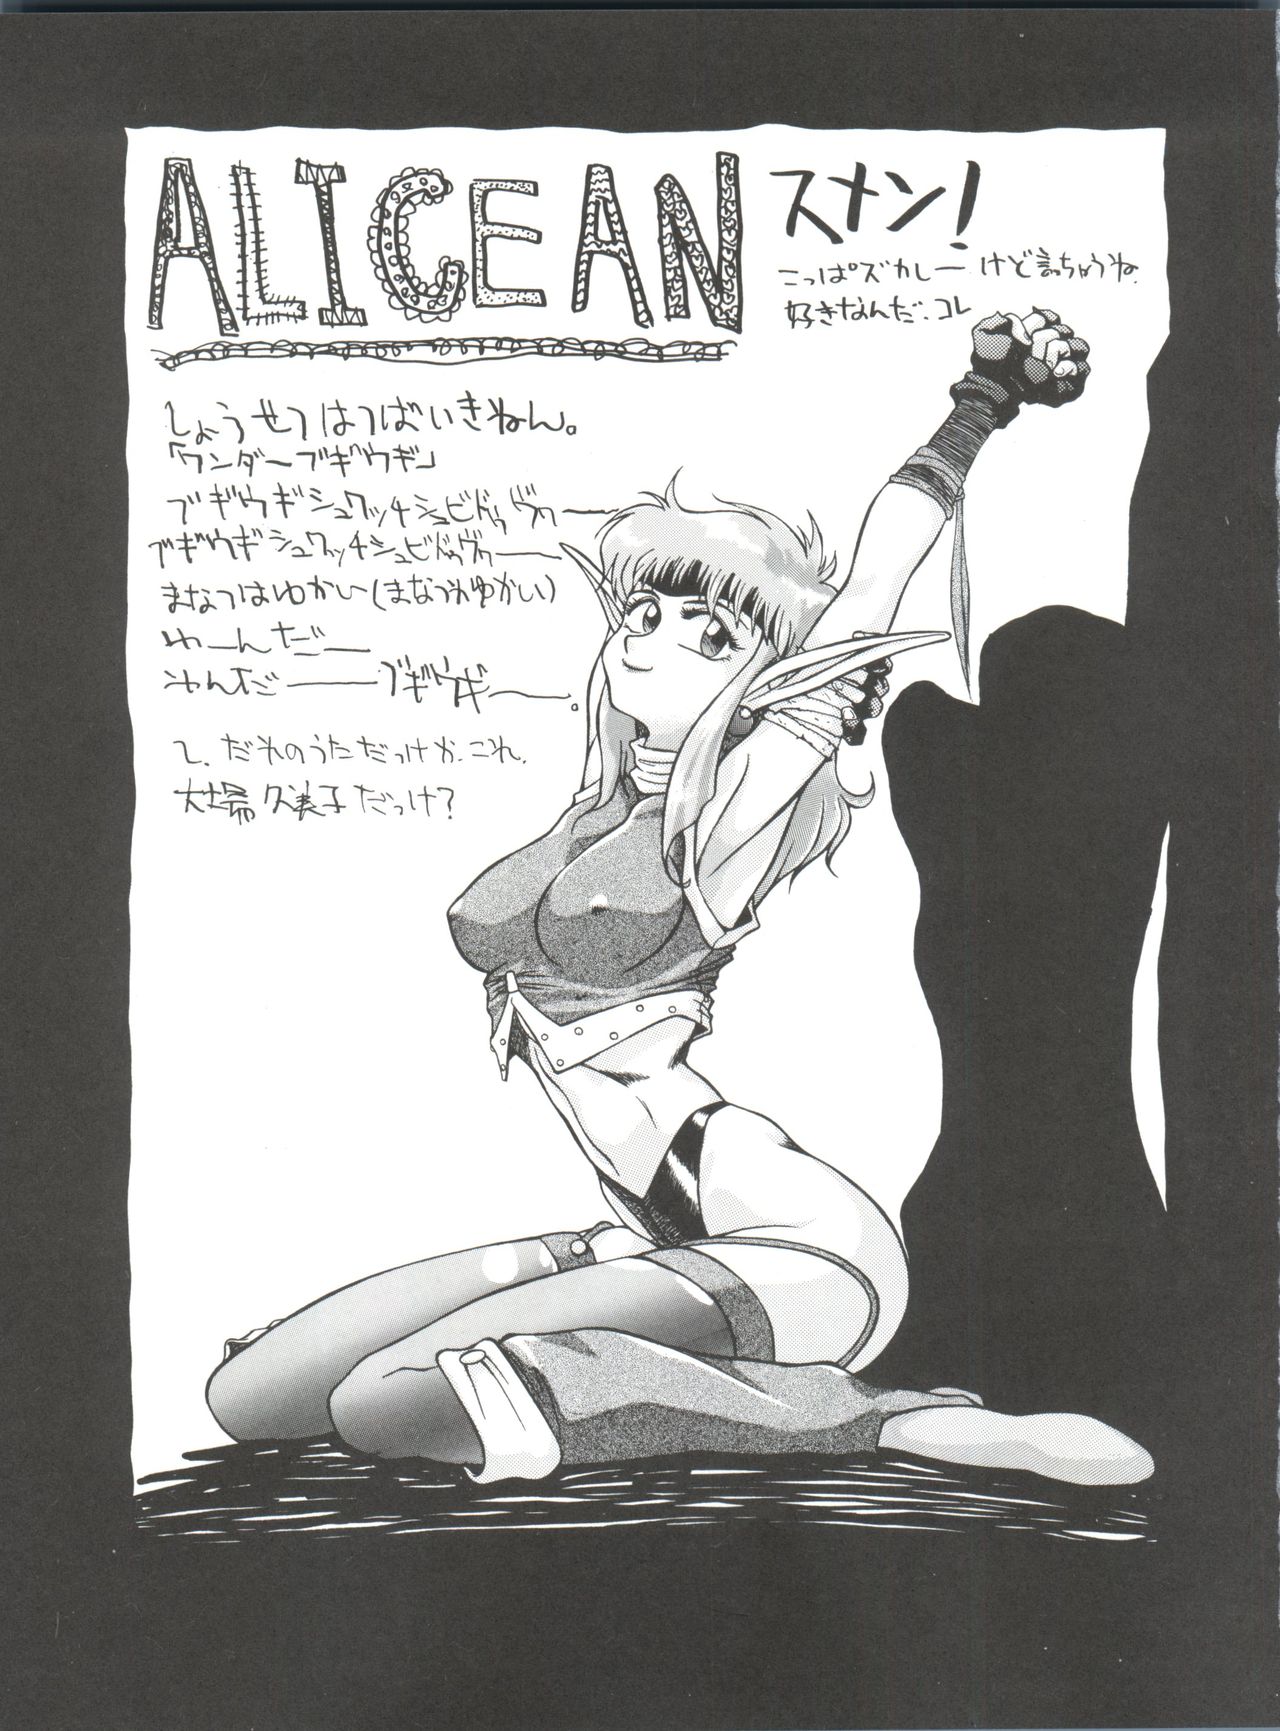 ALICE AN
スメン!
こっぱズカしー けど言っちゃうね.
好きなんだ、コレ
しょうせつはつばいきねん。
「ワンダーブギウギ」
ブギウギシュワッチシュビドゥヴァー
ブギウギシュワッチシュビドゥヴァー
まなつはゆかい(まなつわゆかい)
わーんだー
わんだーーブギウギー。
だれのうただっけか、これ.
大場久美子だっけ?